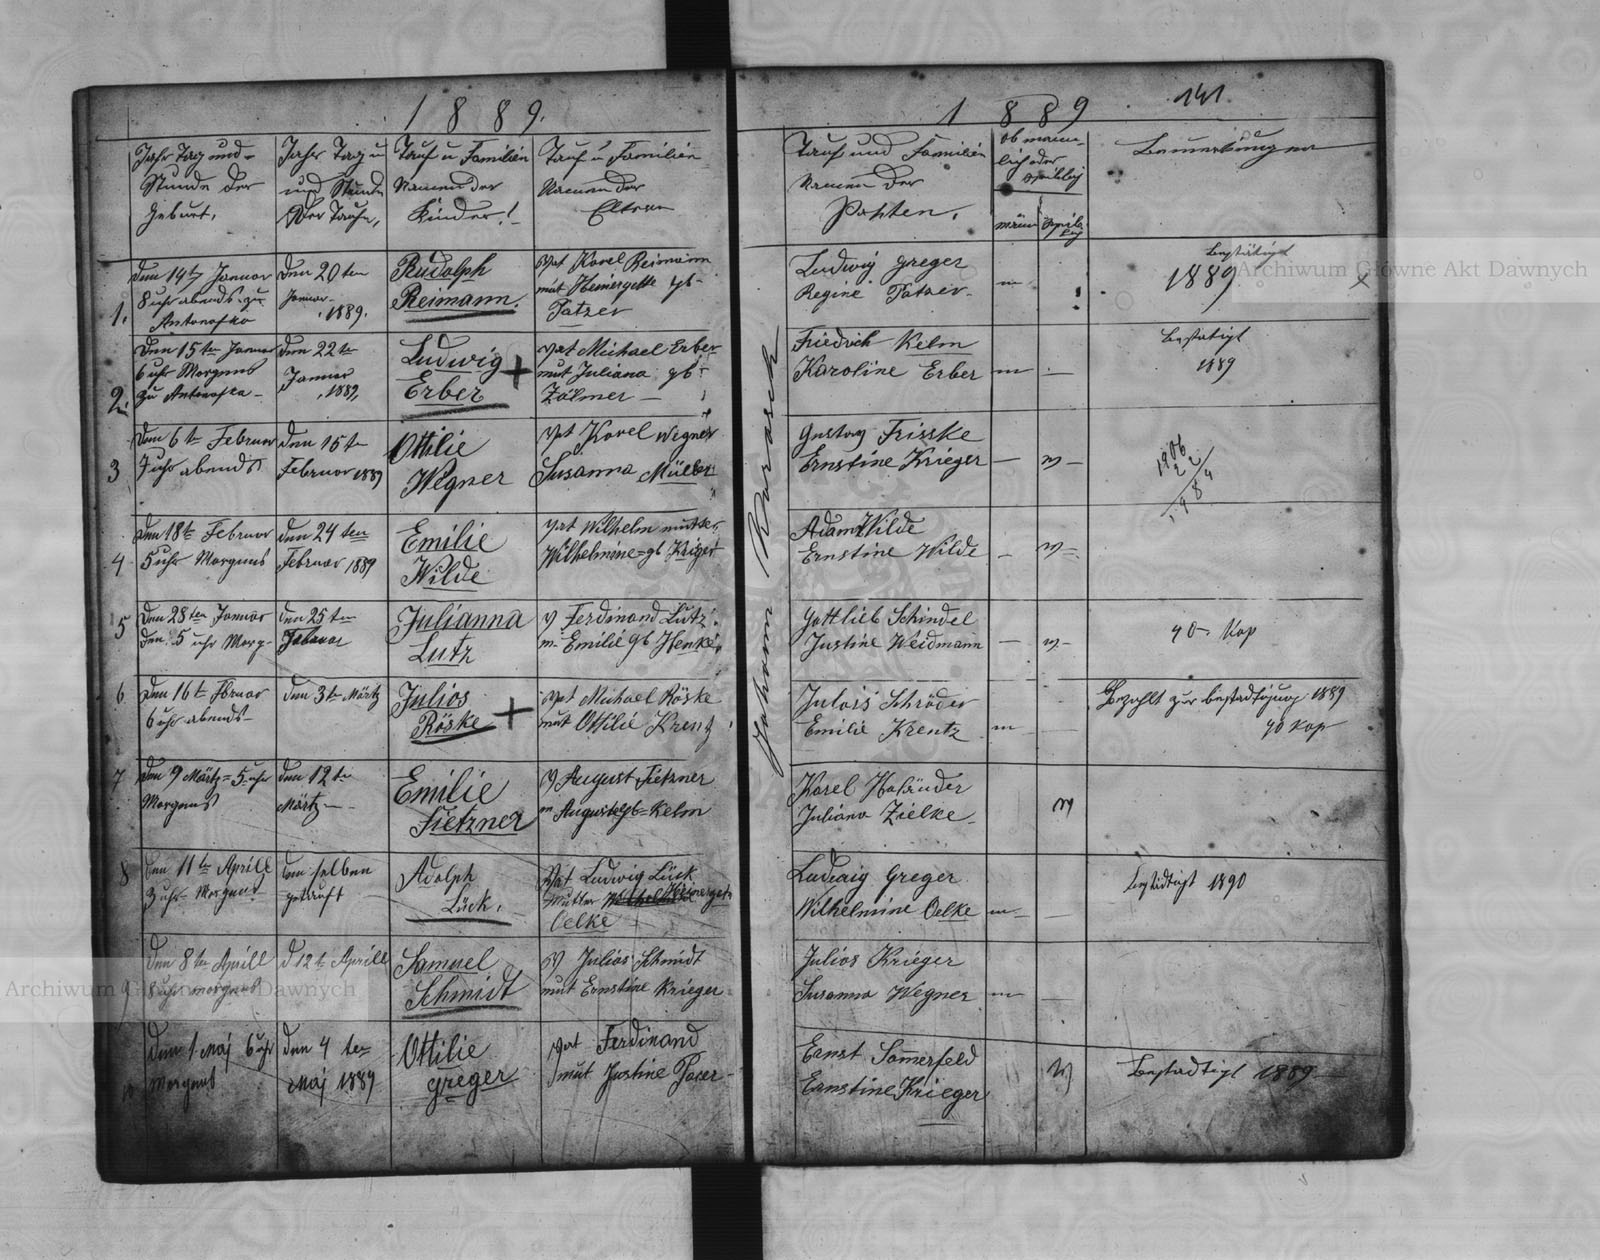 1889.
Jahr Tag und
Stunde der
Geburt,
Jahr Tag u
und Stunde
der Taufe,
Tauf u Familien
Namen der
Kinder!
Tauf u Familien
Namen der
Eltern
1.
Den 14t Januar
8 uhr abends zu
Antonofka
Den 20 ten
Januar
1889.
Rudolph
Reimann.
Vat Karel Reimann
mut Heinergette gb-
Patzer
2.
Den 15 ten Januar
6 uhr Morgens
zu Antonofka
Den 22 ten
Januar
1889,
Ludwig +
Erber
Vat Michael Erber
mut Juliana gb
Zölmer
3
Den 6 t Februar
7 uhr abends
Den 15 t
Februar 1889
Ottilie
Wegner
Vat Karel Wegner
Susanna Müller
4
Den 18 t Februar
5 uhr Morgens
Den 24 ten
Februar 1889
Emilie
Wilde
Vat Wilhelm mutter
Wilhelmine gb Kriger
5
Den 28 ten Januar
den 5 uhr Morg-
den 25 ten
Julianna
Lutz
V Ferdinand Lutz
m Emilie gb Henke
6
Den 16 t
6 uhr abends
den 3 t Märtz
Julios +
Röske
Vat Michael Röske
mut Ottilie Krentz
7
Den 9 Märtz 5 uhr
Morgens
den 12 t
Märtz
Emilie
Fietzner
V August Fietzner
m Auguste gb Kelm
8
Den 11 t Aprill
3 uhr Morgens
den selben
getauft
Adolph
Lück.
Vat Ludwig Lück
Mutter Heinerget
Oelke
9
Den 8 ten Aprill
8 uhr morgens
d 12 t Aprill
Samuel
Schmidt
V Julios Schmidt
mut Ernstine Krieger
10
Den 1 Maj 6 uhr
Morgens
den 4 ten
Maj 1889
Ottilie
greger
Vat Ferdinand
mut Justine
Archiwum Główne Akt Dawnych
1889
141
Tauf und Familien
Namen der
Pahten.
ob männ-
lig oder
weiblig
män
weib-
lig
Bemerkungen
Ludwig greger
Regine Patzer
m
bestätigt
1889
Friedrich Kelm
Karoline Erber
m
bestätigt
1889
Gustav Frisske
Ernstine Krieger
w
1906
22
1984
Adam Wilde
Ernstine Wilde
w
Gottlieb Schindel
Justine Weidmann
w
40 Kop
Schröder
Emilie Krentz
m
Bezahlt zur bestadtigung 1889
40 Kop
Karel Holänder
Juliana Zielke
w
Ludwig Greger
Wilhelmine Oelke
m
bestädtigt 1890
Julios Krieger
Susanna Wegner
m
Ernst Sommerfeld
Ernstine Krieger
w
Bestadtigt 1889
Johann
Archiwum Główne Akt Dawnych